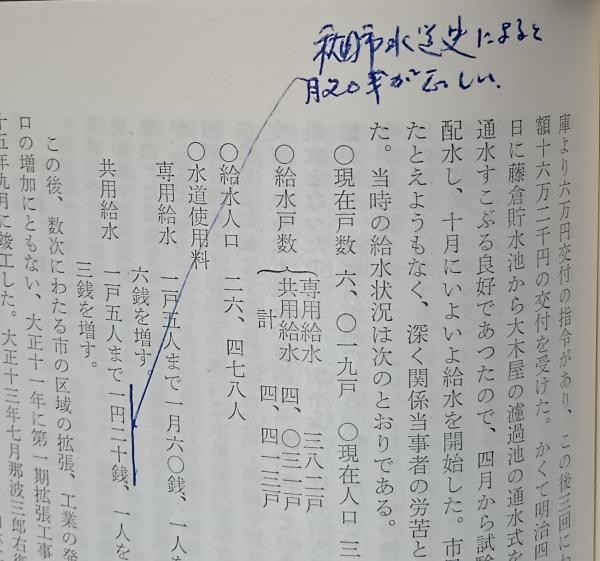 秋田市水道史によると
月20銭が正しい.
庫より六万円交付の指令があり、この後三回にわ
額十六万二千円の交付を受けた。かくて明治四
日に藤倉貯水池から大木屋の濾過池の通水式を
通水すこぶる良好であつたので、四月から試験
配水し、十月にいよいよ給水を開始した。市民
たとえようもなく、深く関係当事者の労苦と
た。当時の給水状況は次のとおりである。
〇現在戸数 六、〇一九戸 〇現在人口 三
〇給水戸数
専用給水 三八二戸
共用給水 四、〇三一戸
計 四、四一三戸
〇給水人口 二六、四七八人
〇水道使用料
専用給水 一戸五人まで一月六〇銭、一人を
六銭を増す。
共用給水 一戸五人まで一円二十銭、一人を
三銭を増す。
この後、数次にわたる市の区域の拡張、工業の発
口の増加にともない、大正十一年に第一期拡張工事
十五年九月に竣工した。大正十三年七月那波三郎右衛